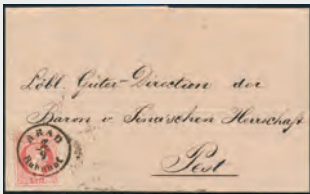 Löbl. Güter-Direction der
Baron v Sinaischen Herrschaft
Pest
ARAD
Bahnhof